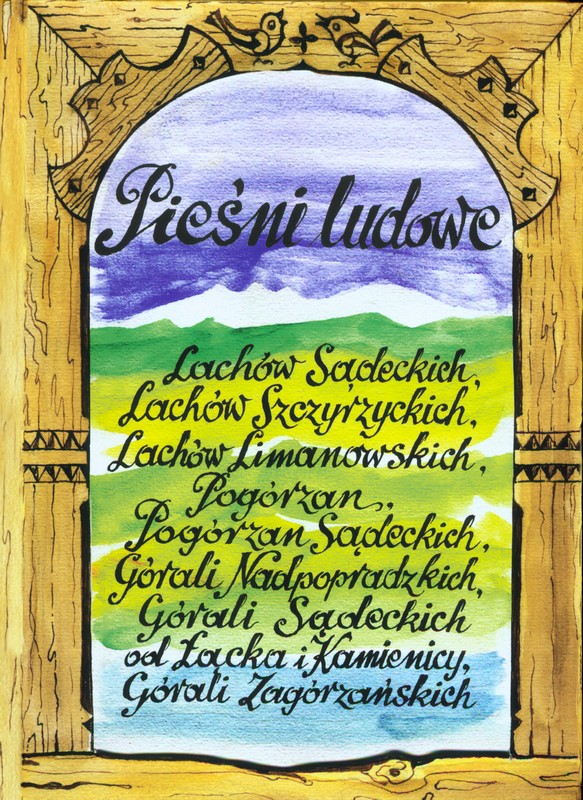 Pieśni ludowe
Lachów Sądeckich,
Lachów Szczyrzyckich,
Lachów Limanowskich,
Pogórzan,
Pogórzan Sądeckich,
Górali Nadpopradzkich,
Górali Sądeckich
od Łącka i Kamienicy,
Górali Zagórzańskich